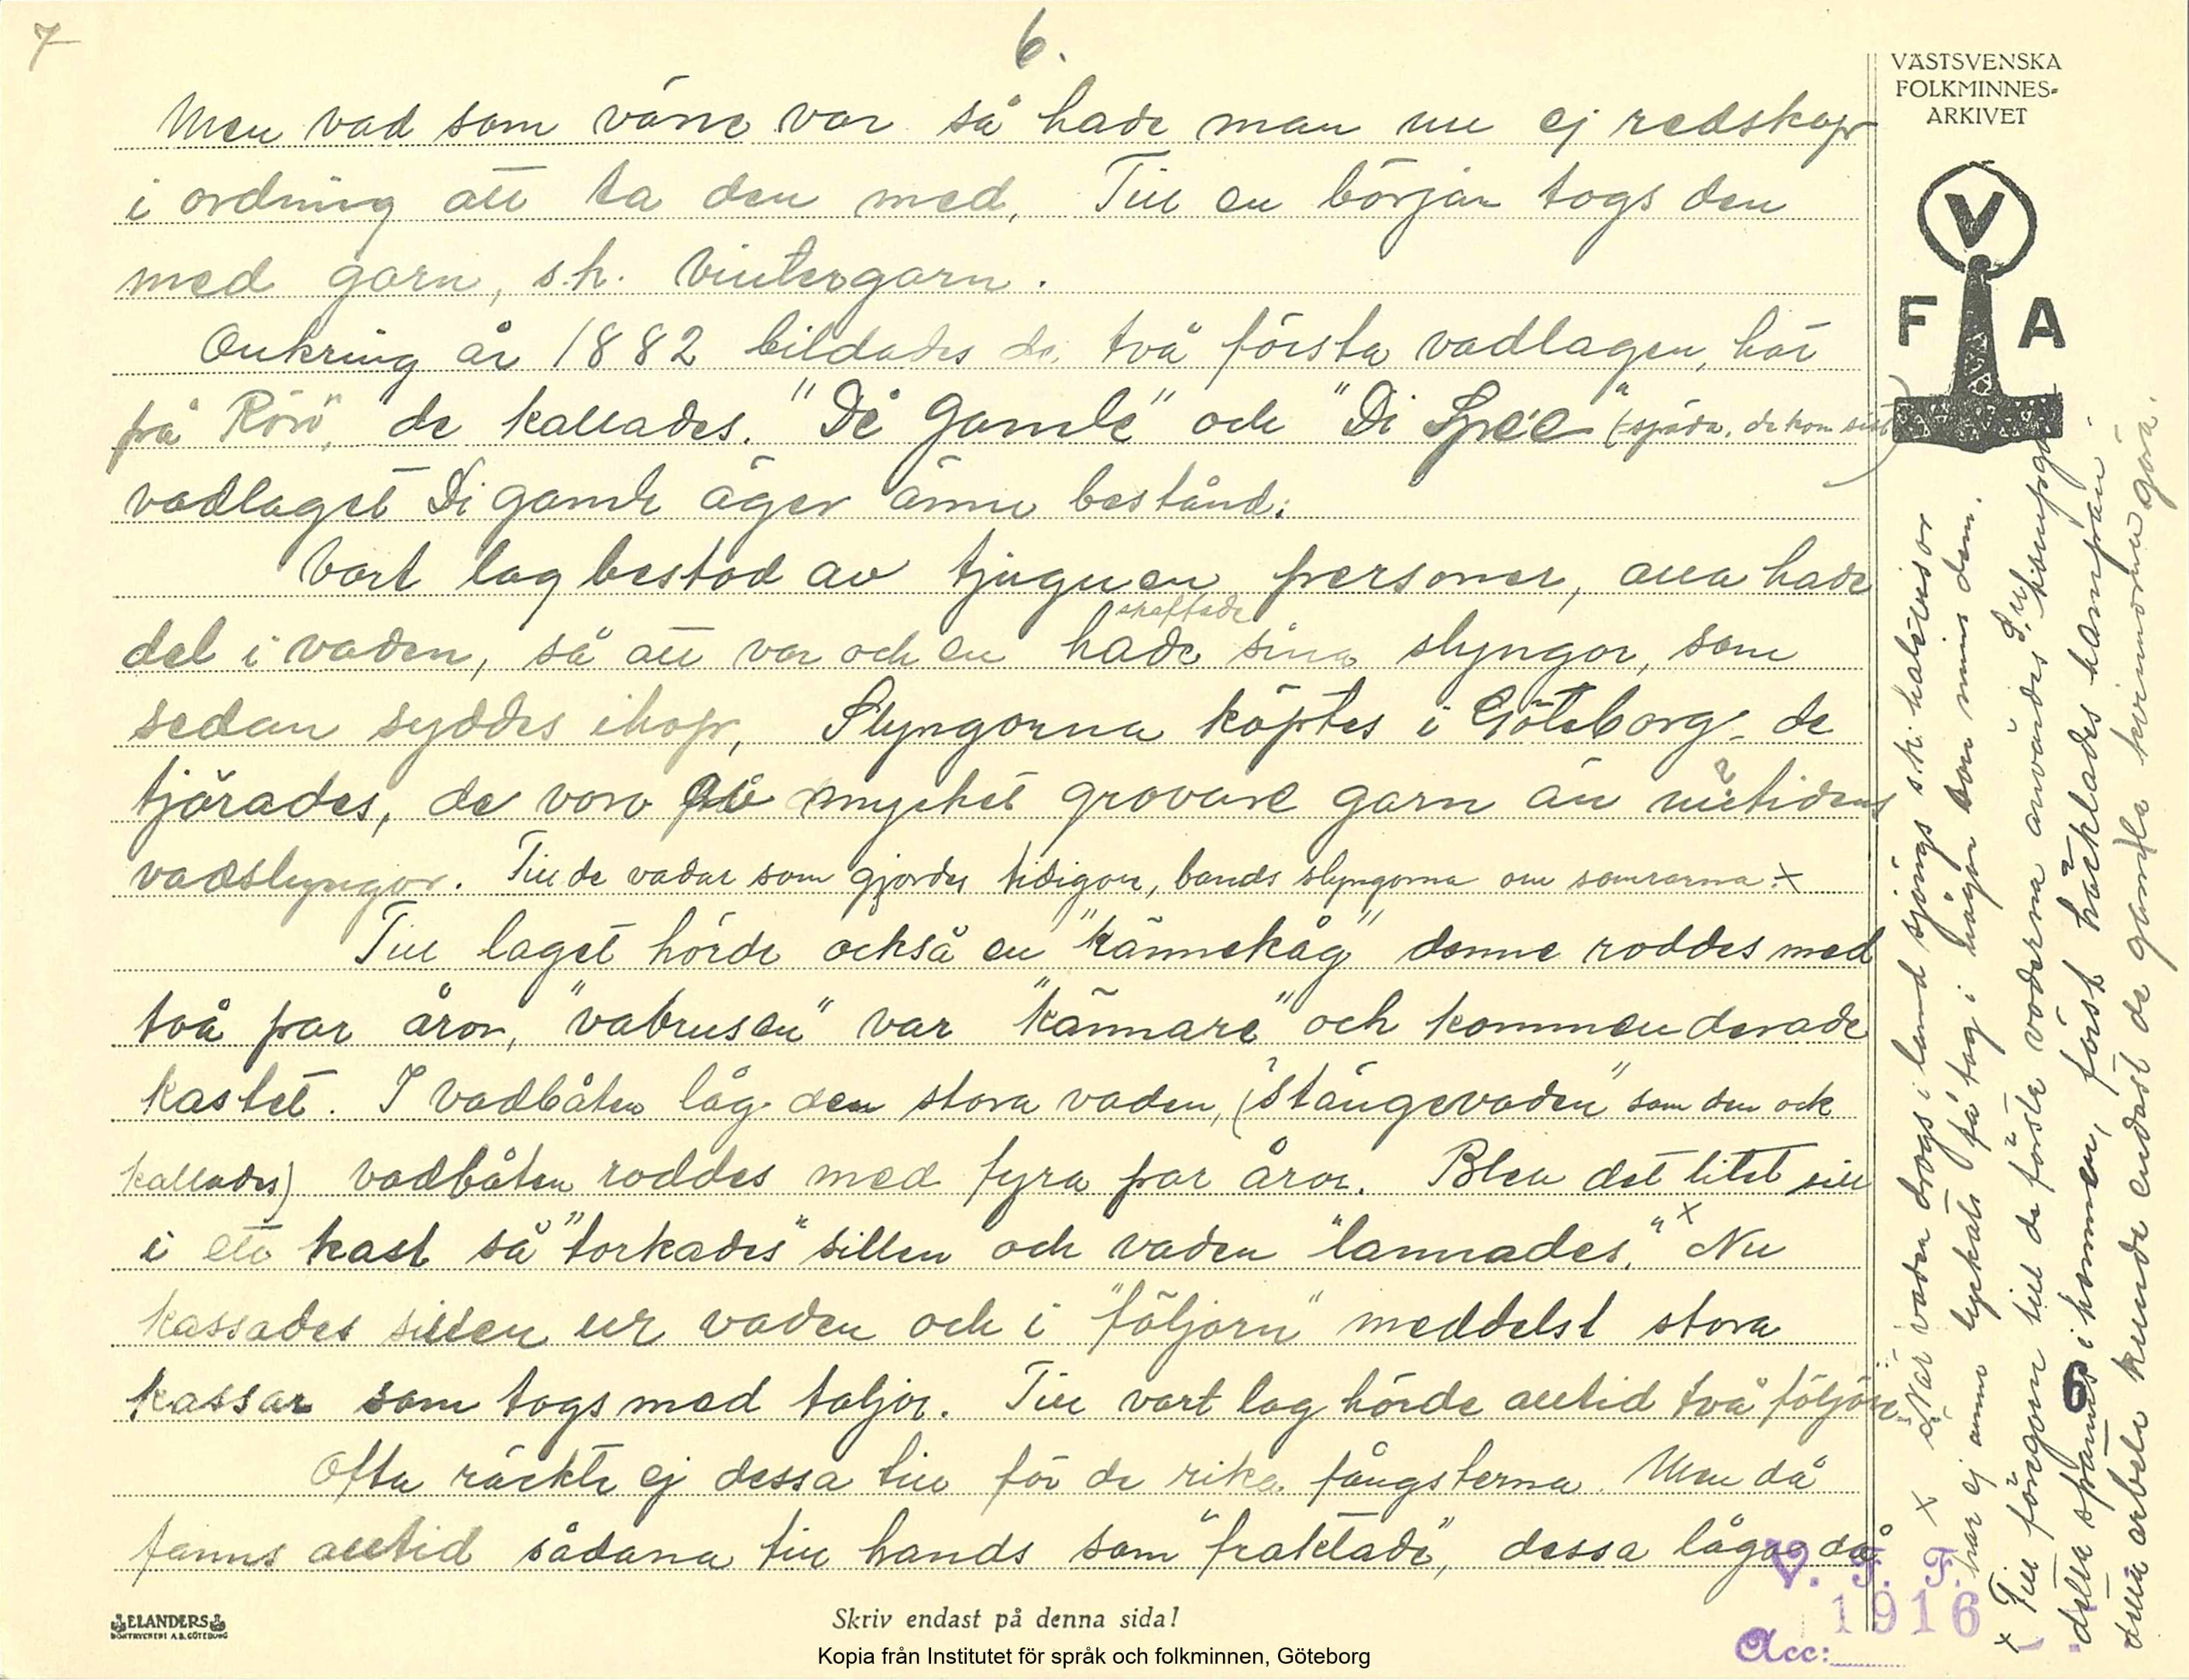 7
6.
VÄSTSVENSKA
FOLKMINNES-
ARKIVET
V
F A
Men vad som värre var så hade man nu ej redskap
i ordning att ta den med. Till en början togs den
med garn, s.k. Vintergarn.
Omkring år 1882 bildades de två första vadlagen, här
på Rörö, de kallades. "Di Gamle" och "Di Spée" (=späda, de kom sist)
vadlaget Di gamle äger ännu bestånd.
Vart lag bestod av tjuguen personer, alla hade
del i vaden, så att var och en hade skaffade sina slyngor, som
sedan syddes ihop, Slyngorna köptes i Göteborg - de
tjärades, de voro av mycket grovare garn än nutidens
vadslyngor. Till de vadar som gjordes tidigare, bands slyngorna om somrarna. x
Till laget hörde också en "kännekåg" denne roddes med
två par åror, "vabrusen" var "kännare" och kommenderade
kastet. I vadbåten låg den stora vaden, ("stängevaden" som den ock
kallades) vadbåten roddes med fyra par åror. Blev det litet sill
i ett kast så "torkades" sillen och vaden "lannades." x Nu
kassades sillen ur vaden och i "följorn" meddelst stora
kassar som togs med taljor. Till vart lag hörde alltid två följöre.
Ofta räckte ej dessa till för de rika fångsterna. Men då
fanns alltid sådana till hands som "fraktade", dessa lågo då
x När vaden drogs i land sjöngs s.k. halevisor
har ej ännu lyckats få tag i någon som minns dem.
x Till föregom till de första vaderna användes
detta spanns i hemmen, först häcklades hampan
detta arbete kunde endast de gamla kvinnorna göra.
6
V. F. F.
1916
Acc:
ELANDERS
BOKTRYCKERI A.B. GÖTEBORG
Skriv endast på denna sida!
Kopia från Institutet för språk och folkminnen, Göteborg